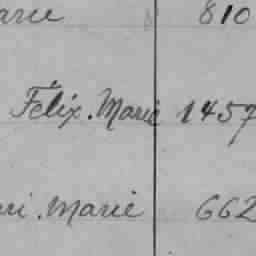 arie 810
Félix. Marie 1457
ri. Marie 662